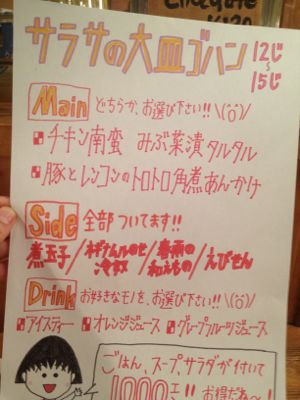 サラサの大皿ゴハン 12じ〜15じ
Main どちらか、お選び下さい!! \(ö)/
チキン南蛮 みぶ菜漬タルタル
豚とレンコンのトロトロ角煮あんかけ
Side 全部ついてます!!
煮玉子/ネギナムルのせ冷奴/春雨の和えもの/えびせん
Drink お好きなモノを、お選び下さい!! \(ö)/
アイスティー オレンジジュース グレープフルーツジュース
ごはん、スープ、サラダが付いて
1000エン!! お得だね〜!